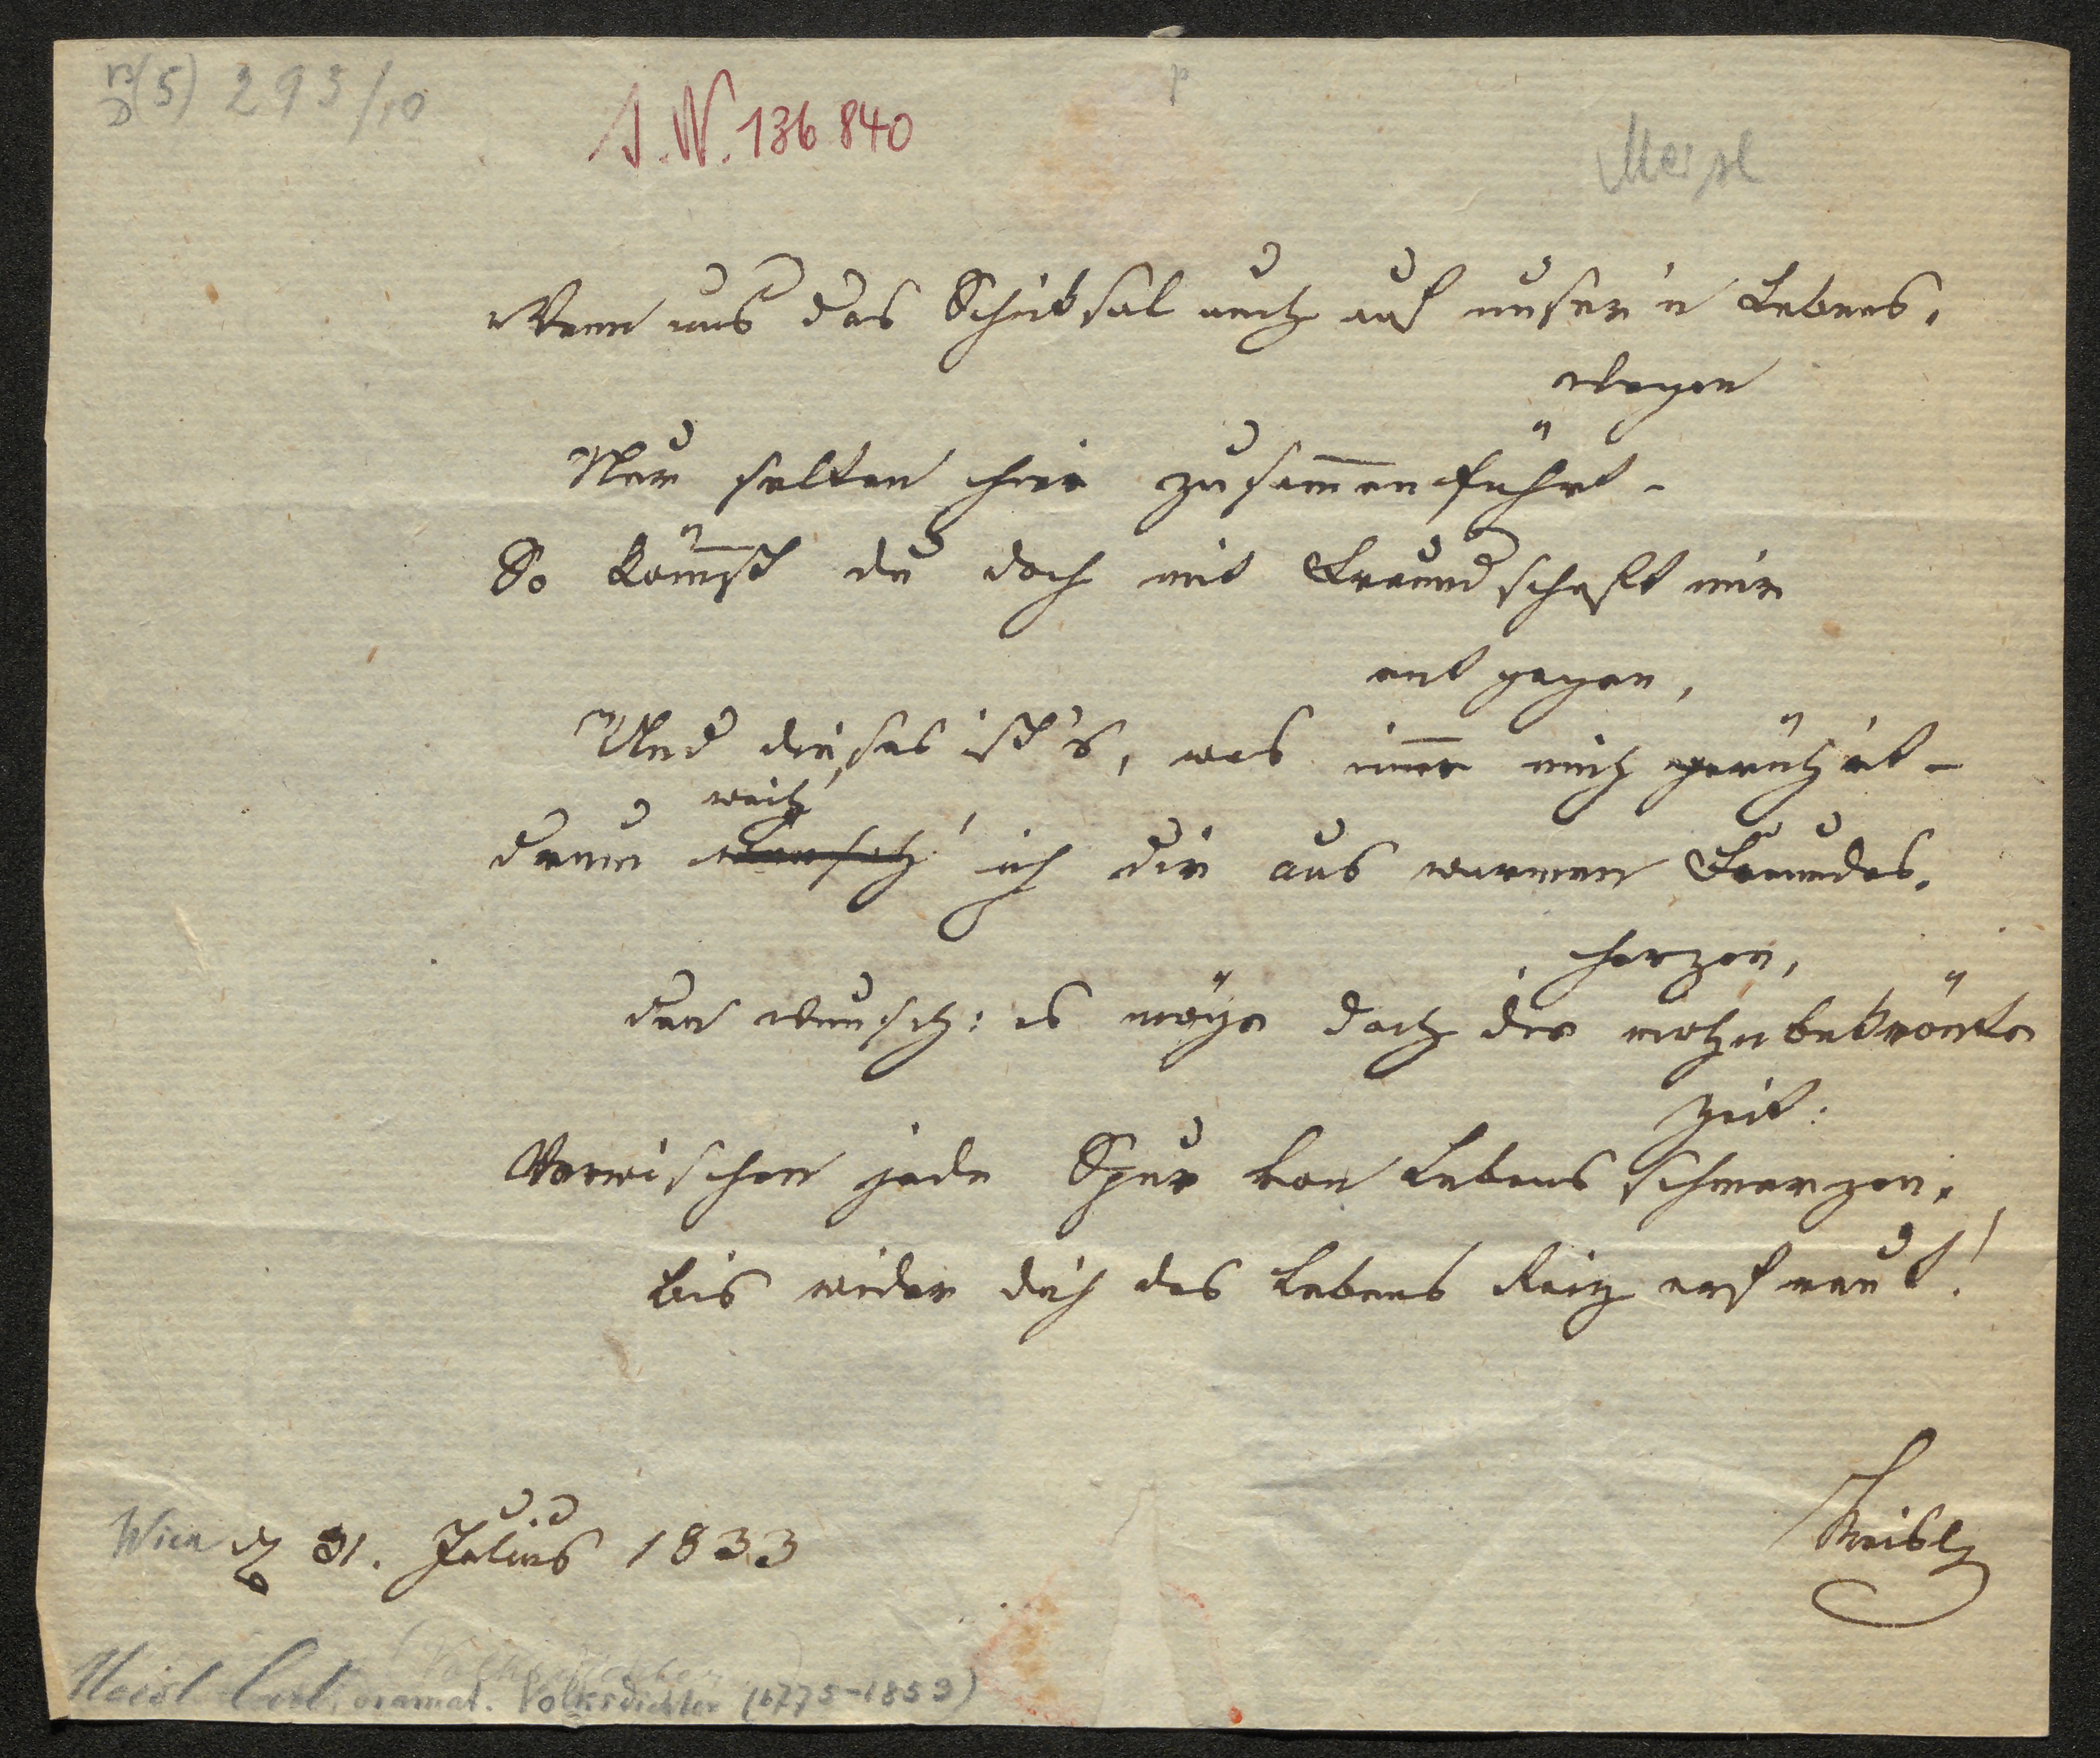 293/10
I.N. 136 840
Meisl
Wenn uns das Schiksal auch auf unser'n Lebens-
wegen
Nur selten hier zusam̅enführt -
So köm̅st du doch mit Freundschaft mir
entgegen,
Und dieses ist's, was im̅er mich gerühret -
weih'
drum wunsch' ich dir aus warmen Freundes-
herzen,
den Wunsch: es möge doch die mohnbekrönte
Zeit:
Verwischen jede Spur von Lebensschmerzen,
bis wieder dich des Lebens Reiz erfreut!
Meisl
Wien d 31. Julius 1833
Meisl Carl, dramat. Volksdichter (1775-1853)